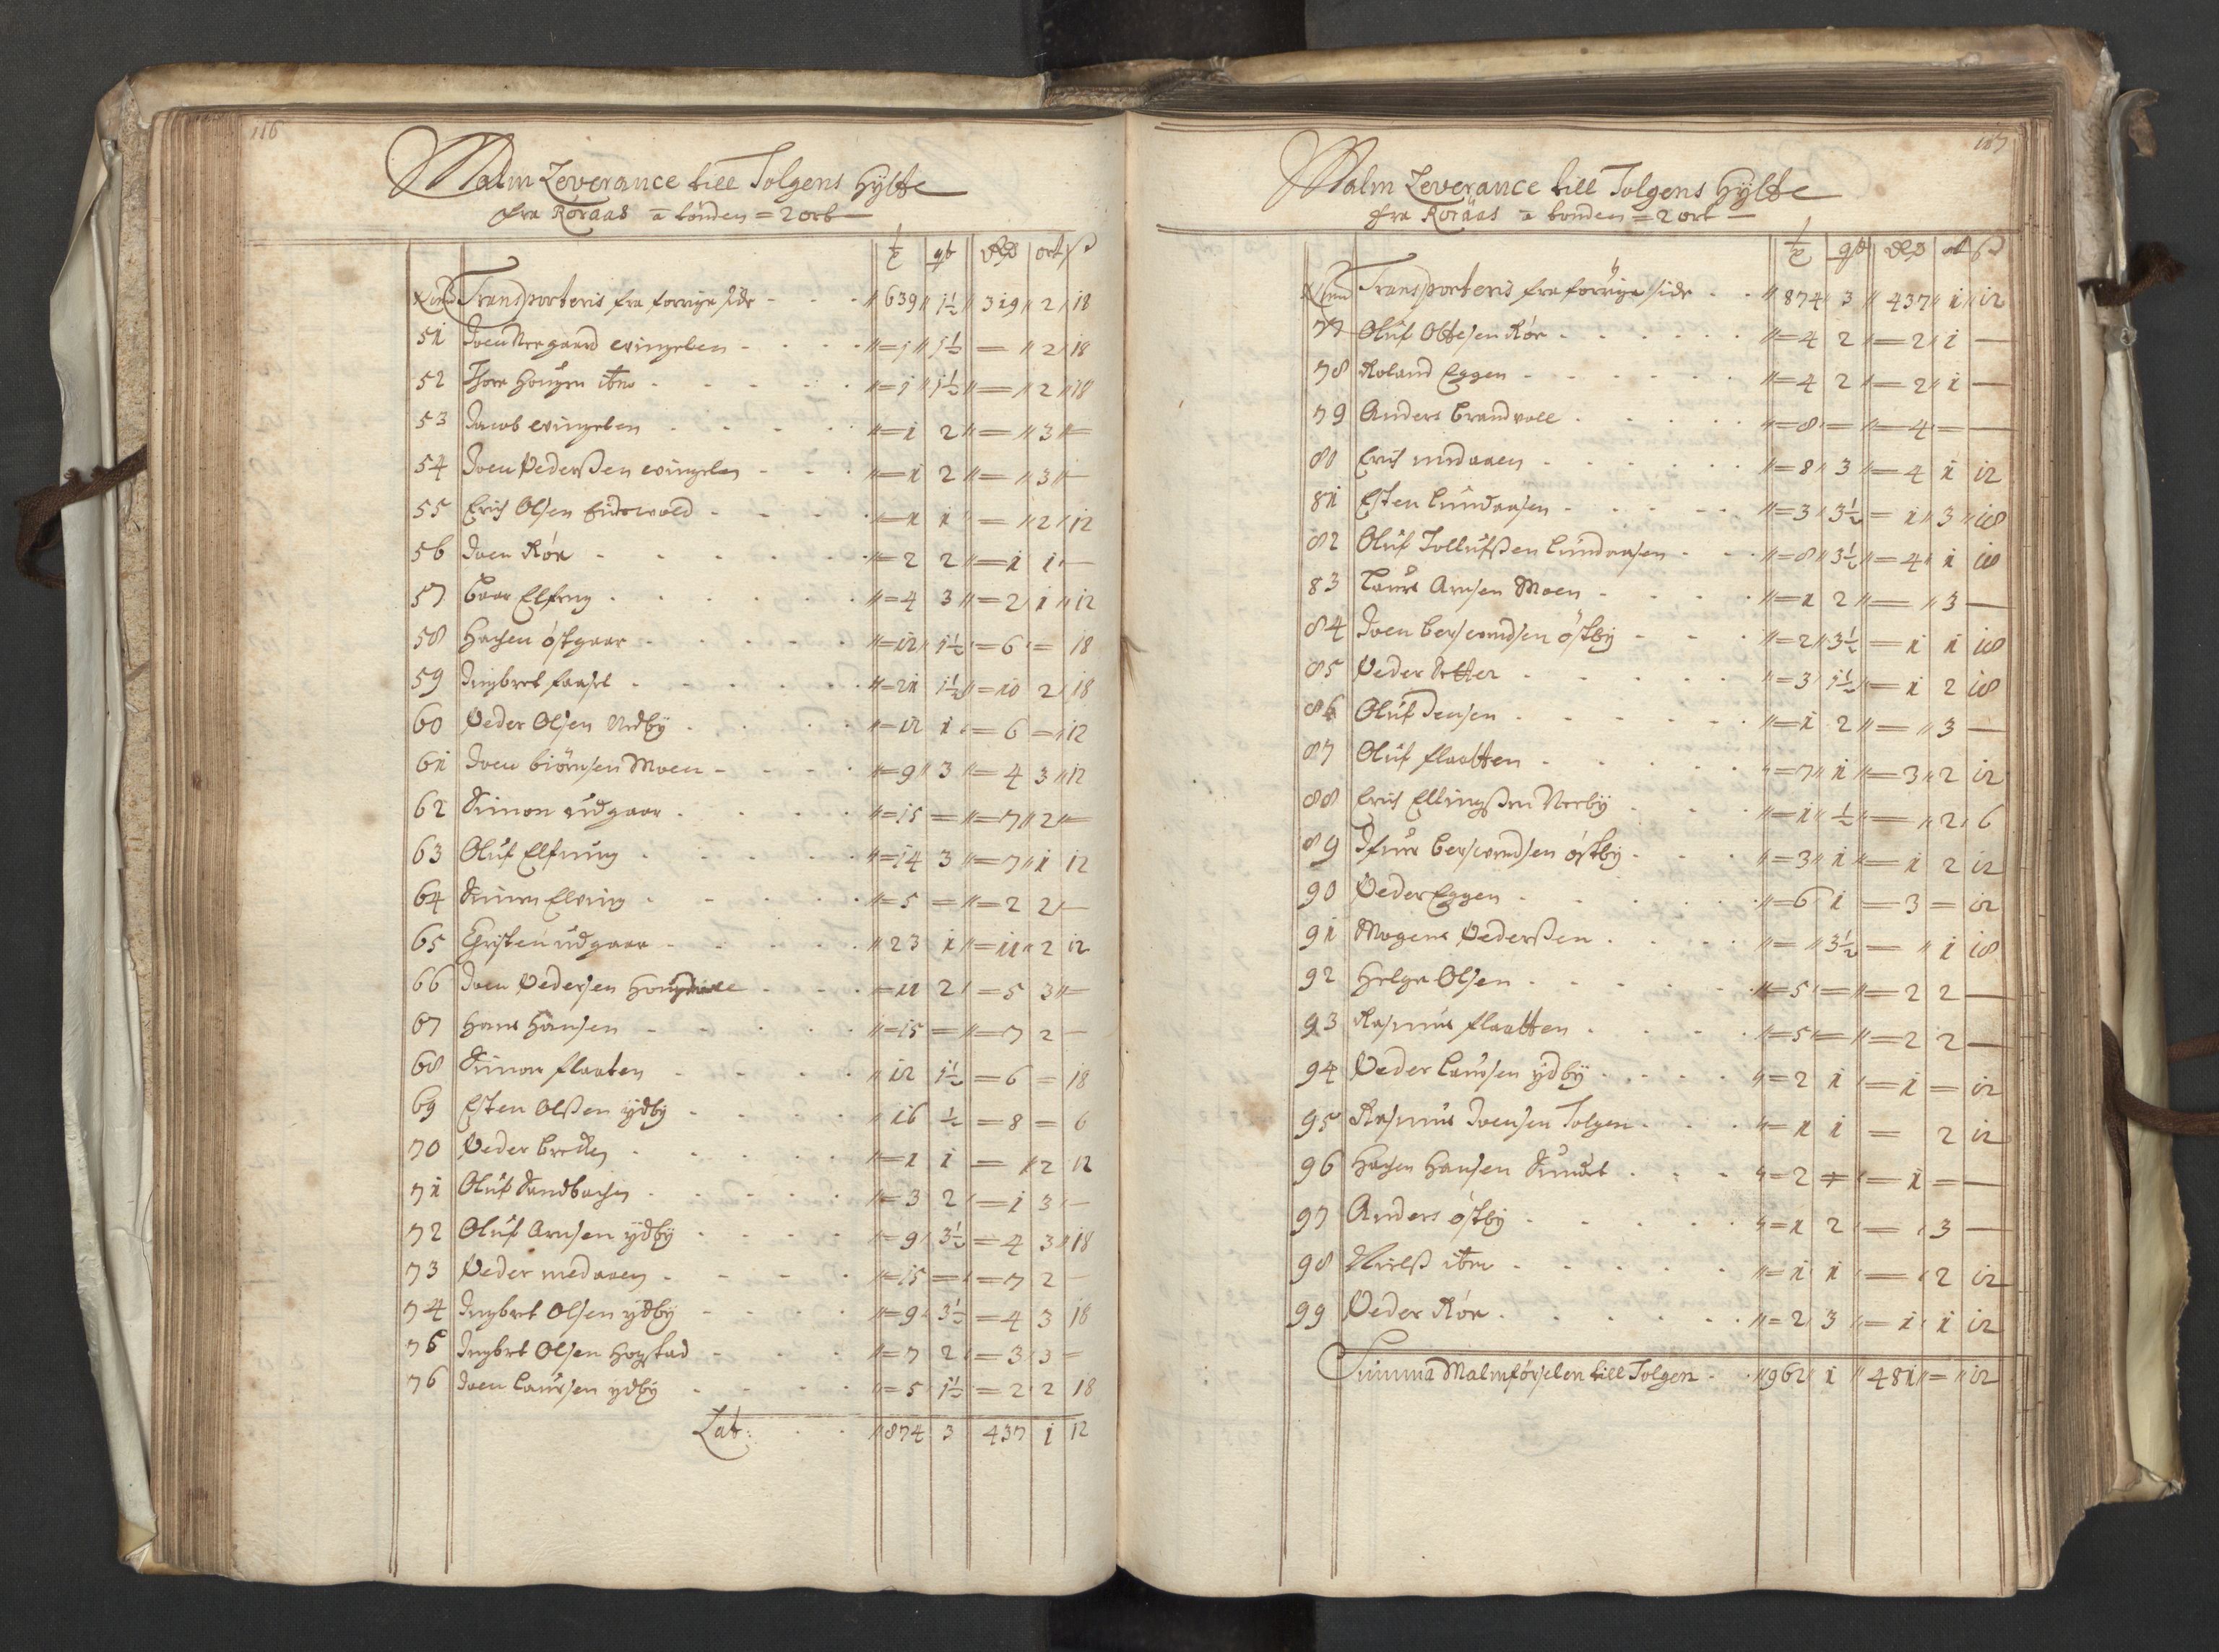 116
Malm Leverance till Tolgens Hÿtte
fra Röraas a tönden = 2 ort
tr qt Rdr ort ß
Num Transporteris fra forrige side 639 1½ 319 2 18
51 Joen Nergaard Wingelen 1 1½ = 2 18
52 Thore Hougen itm 1 1½ = 2 18
53 Jacob Wingelen 1 2 = 3 —
54 Joen Pederßen Wingelen 1 2 = 3 —
55 Erich Olsen Eidswold 1 1 = 2 12
56 Joen Rör 2 2 1 1 —
57 Baar Elfeng 4 3 2 1 12
58 Hagen östgaar 12 1½ 6 = 18
59 Ingbret faaset 21 1½ 10 2 18
60 Peder Olsen Nedbÿ 12 1 6 = 12
61 Joen biörnsen Moen 9 3 4 3 12
62 Simon udgaar 15 = 7 2 —
63 Oluf Elfeng 14 3 7 1 12
64 Simen Elving 5 = 2 2 —
65 Christen udgaar 23 1 11 2 12
66 Joen Pedersen 11 2 5 3 —
67 Hans Hansen 15 = 7 2 —
68 Simon flaaten 12 1½ 6 = 18
69 Esten Olßen ÿdbÿ 16 ½ 8 = 6
70 Peder bretten 1 1 = 2 12
71 Oluf Sandbachen 3 2 1 3 —
72 Oluf Arnsen ÿdbÿ 9 3½ 4 3 18
73 Peder medaaen 15 = 7 2 —
74 Ingbret Olsen ÿdbÿ 9 3½ 4 3 18
75 Ingbret Olsen Hogstad 7 2 3 3 =
76 Joen Laursen ÿdbÿ 5 1½ 2 2 18
Lat: 874 3 437 1 12
117
Malm Leverance till Tolgens Hÿtte
fra Röraas a tonden = 2 ort
tr qt Rdr ort ß
Num Transporteris fra forrige side 874 3 437 1 12
77 Oluf Ottesen Rör 4 2 2 1 —
78 Roland Eggen 4 2 2 1 —
79 Anders brandvoll 8 = 4 = —
80 Erich midaaen 8 3 4 1 12
81 Esten Lundaasen 3 3½ 1 3 18
82 Oluf Tollufßen Lundaasen 8 3½ 4 1 18
83 Laurs Arnsen Moen 1 2 = 3 —
84 Joen berswendsen östbÿ 2 3½ 1 1 18
85 Peder 3 1½ 1 2 18
86 Oluf Jensen 1 2 = 3 —
87 Oluf flaatten 7 1 3 2 12
88 Erich Ellingßen Nerbÿ 1 ½ = 2 6
89 berswendsen östbÿ 3 1 1 2 12
90 Peder Eggen 6 1 3 = 12
91 Mogens Pederßen = 3½ = 1 18
92 Helge Olsen 5 = 2 2 —
93 Rasmus flaatten 5 = 2 2 —
94 Peder Laursen ÿdbÿ 2 1 1 = 12
95 Rasmus Joensen Tolgen 1 1 = 2 12
96 Hagen Hansen Sundet 2 = 1 = —
97 Anders östbÿ 1 2 = 3 —
98 Nielß itm 1 1 = 2 12
99 Peder Rör 2 3 1 1 12
Summa Malmförselen till Tolgen 962 1 481 = 12